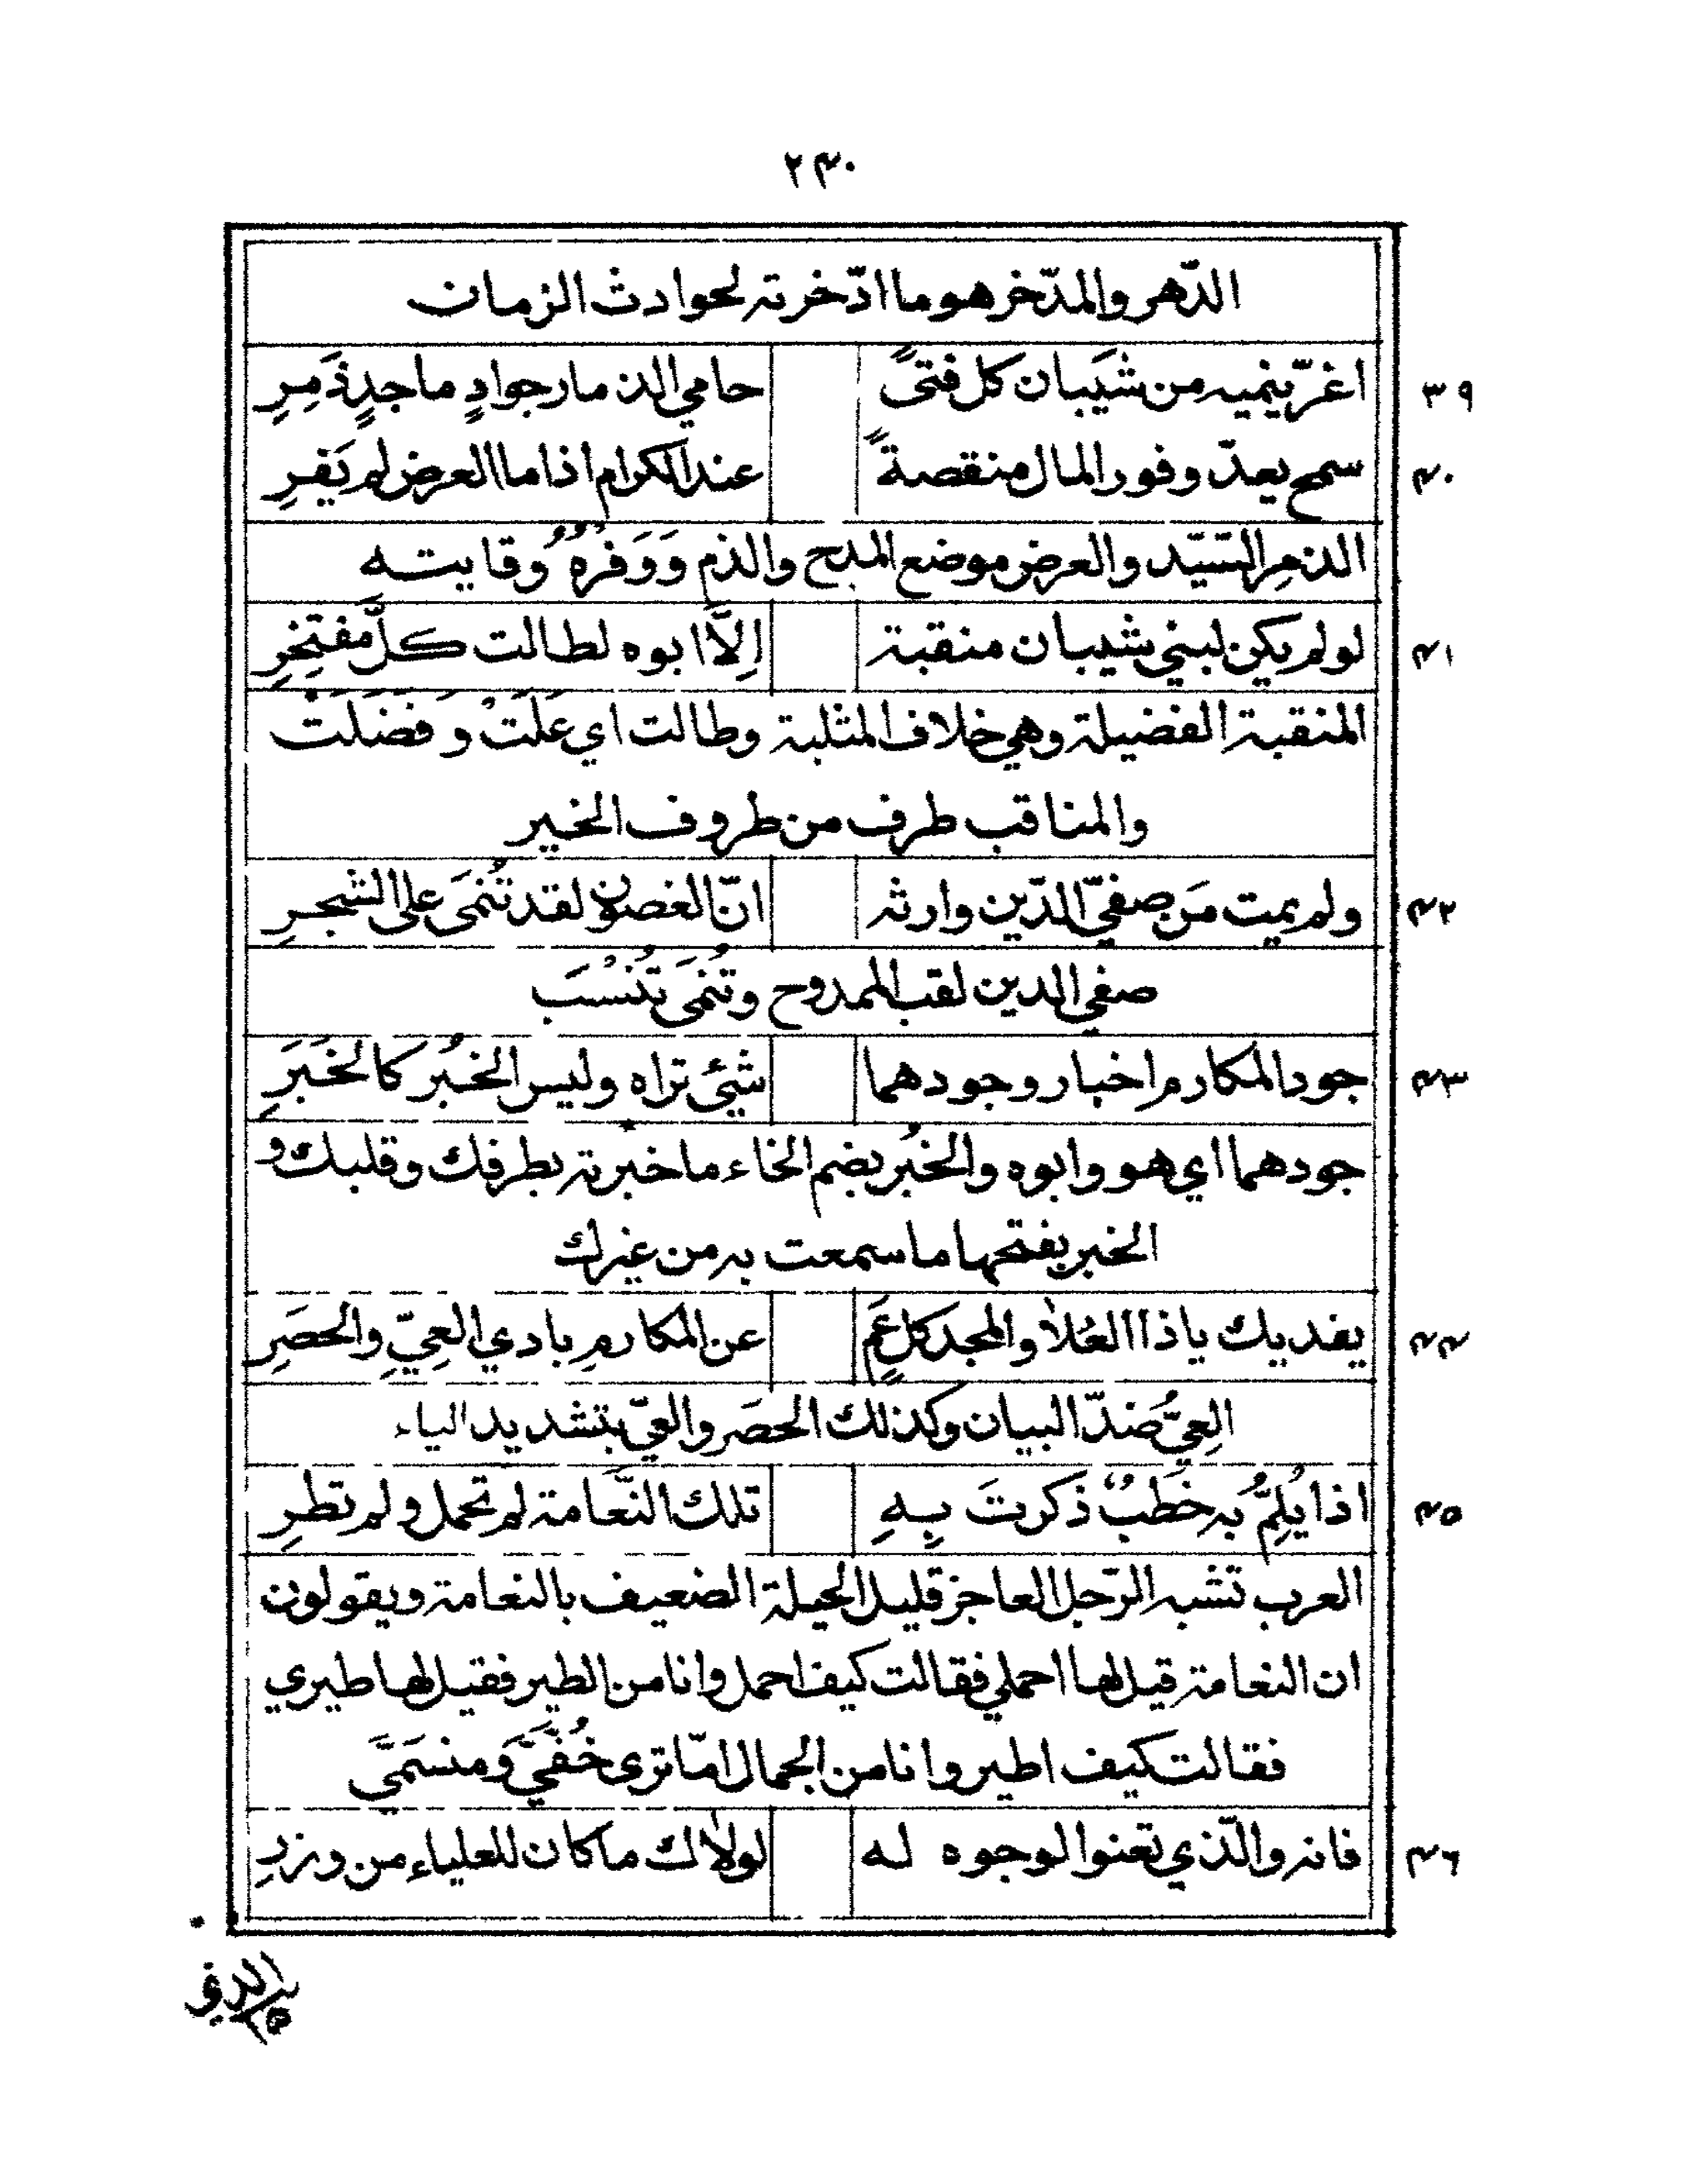 ٢٤٠
الدّهر والمدّخر هو ما ادّخرته لحوادث الزمان
٣٩ اغرّ ينميه من شَيبان كل فتىً حامي الذمار جوادٍ ماجدٍ ذَمِرِ
٤٠ سمح يعدّ وفور المال منقصةً عند الكرام اذا ما العرض لم يَفِرِ
الذمِر السّيّد والعرض موضع المدح والذم وَوَفرُهُ وقايته
٤١ لو لم يكن لبني شيبان منقبة اِلّا ابوه لطالت كلَّ مفتخِرِ
المنقبة الفضيلة وهي خلاف المثلبة وطالت اي عَلَتْ وفَضَلَتْ
والمناقب طرف من طروف الخير
٤٢ ولم يمت مَن صفيّ الدّين وارثه انّ الغصون لقد تُنمَى على الشجرِ
صفي الدين لقب الممدوح وتُنمَى تُنْسَب
٤٣ جود المكارم اخبار وجودهما شيئ تراه وليس الخُبر كالخَبَرِ
جودهما اي هو وابوه والخُبر بضم الخاء ما خبرته بطرفك وقلبك و
الخبر بفتحها ما سمعت به من غيرك
٤٤ يفديك يا ذا العُلا والمجد كل عَمٍ عن المكارمِ بادي العِيِّ والحصَرِ
العِيُّ ضدّ البيان وكذلك الحصَر والعيّ بتشديد الياء
٤٥ اذا يُلِمُّ به خَطبٌ ذكرتَ بِهِ تلك النَّعامة لم تحمل ولم تطرِ
العرب تشبه الرّجل العاجز قليل الحيلة الضعيف بالنعامة ويقولون
ان النعامة قيل لها احملي فقالت كيف احمل وانا من الطير فقيل لها طيري
فقالت كيف اطير وانا من الجمال امّا ترى خُفَّيَّ ومنسَمَيَّ
٤٦ فانه والّذي تعنوا الوجوه له لولاك ما كان للعلياء من وزرِ